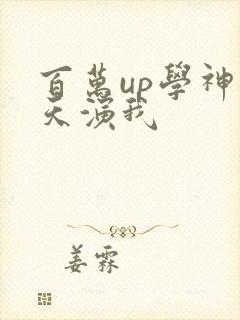 百萬up學神天
天演我
姜霖